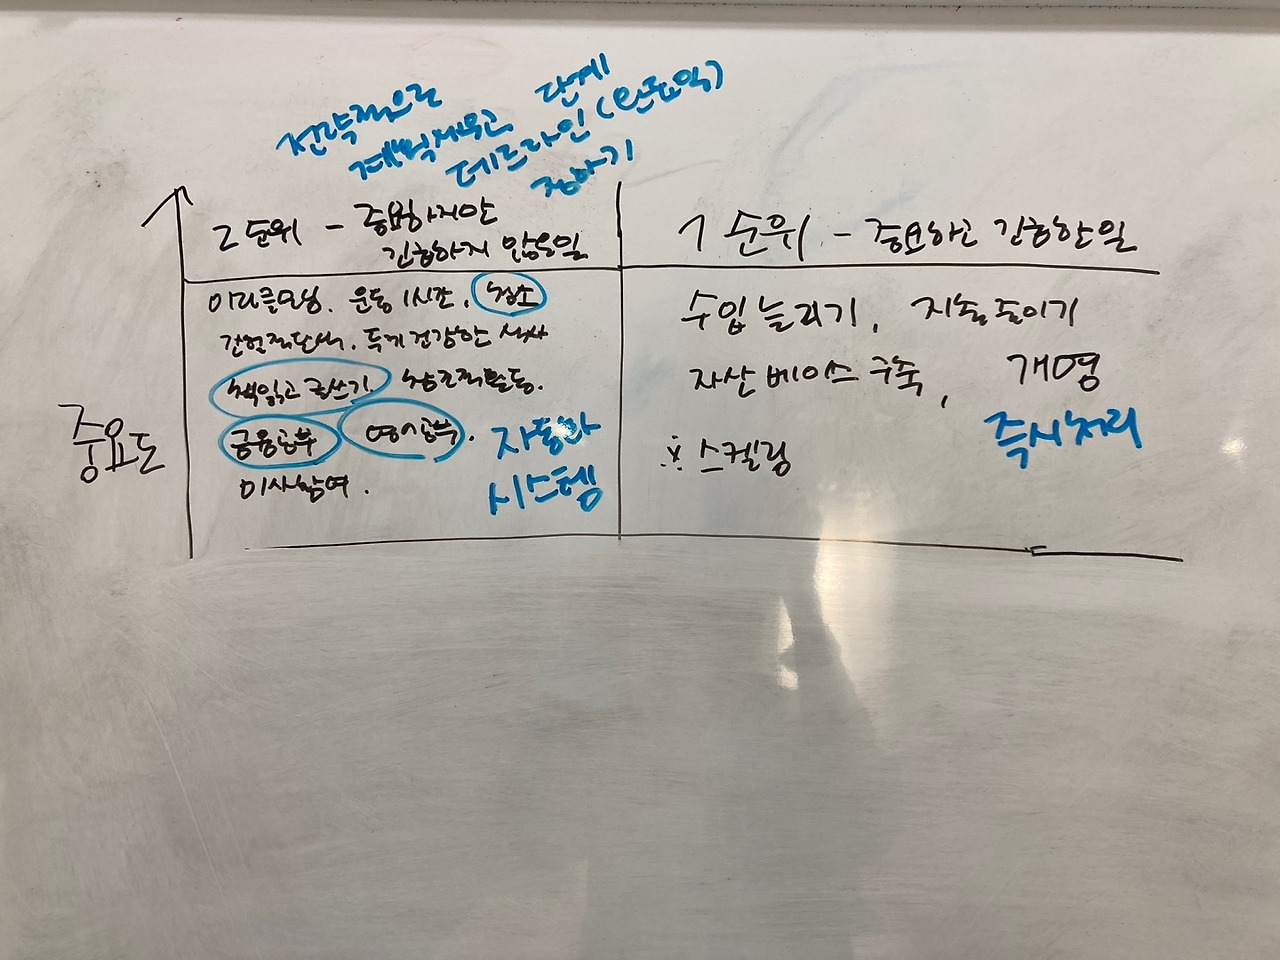 전략적으로
계획세우고
단계
데드라인 (
정하기
2순위 - 중요하지만
긴급하지 않은일
1순위 - 중요하고 긴급한일
미라클모닝. 운동 1시간. 청소
간헐적단식. 두끼 건강한 식사
책읽고 글쓰기. 창조적활동.
금융공부 영어공부.
자동화
시스템
이사참여.
수입 늘리기, 지출 줄이기
자산 베이스 구축, 개명
즉시처리
※ 스켈링
중요도